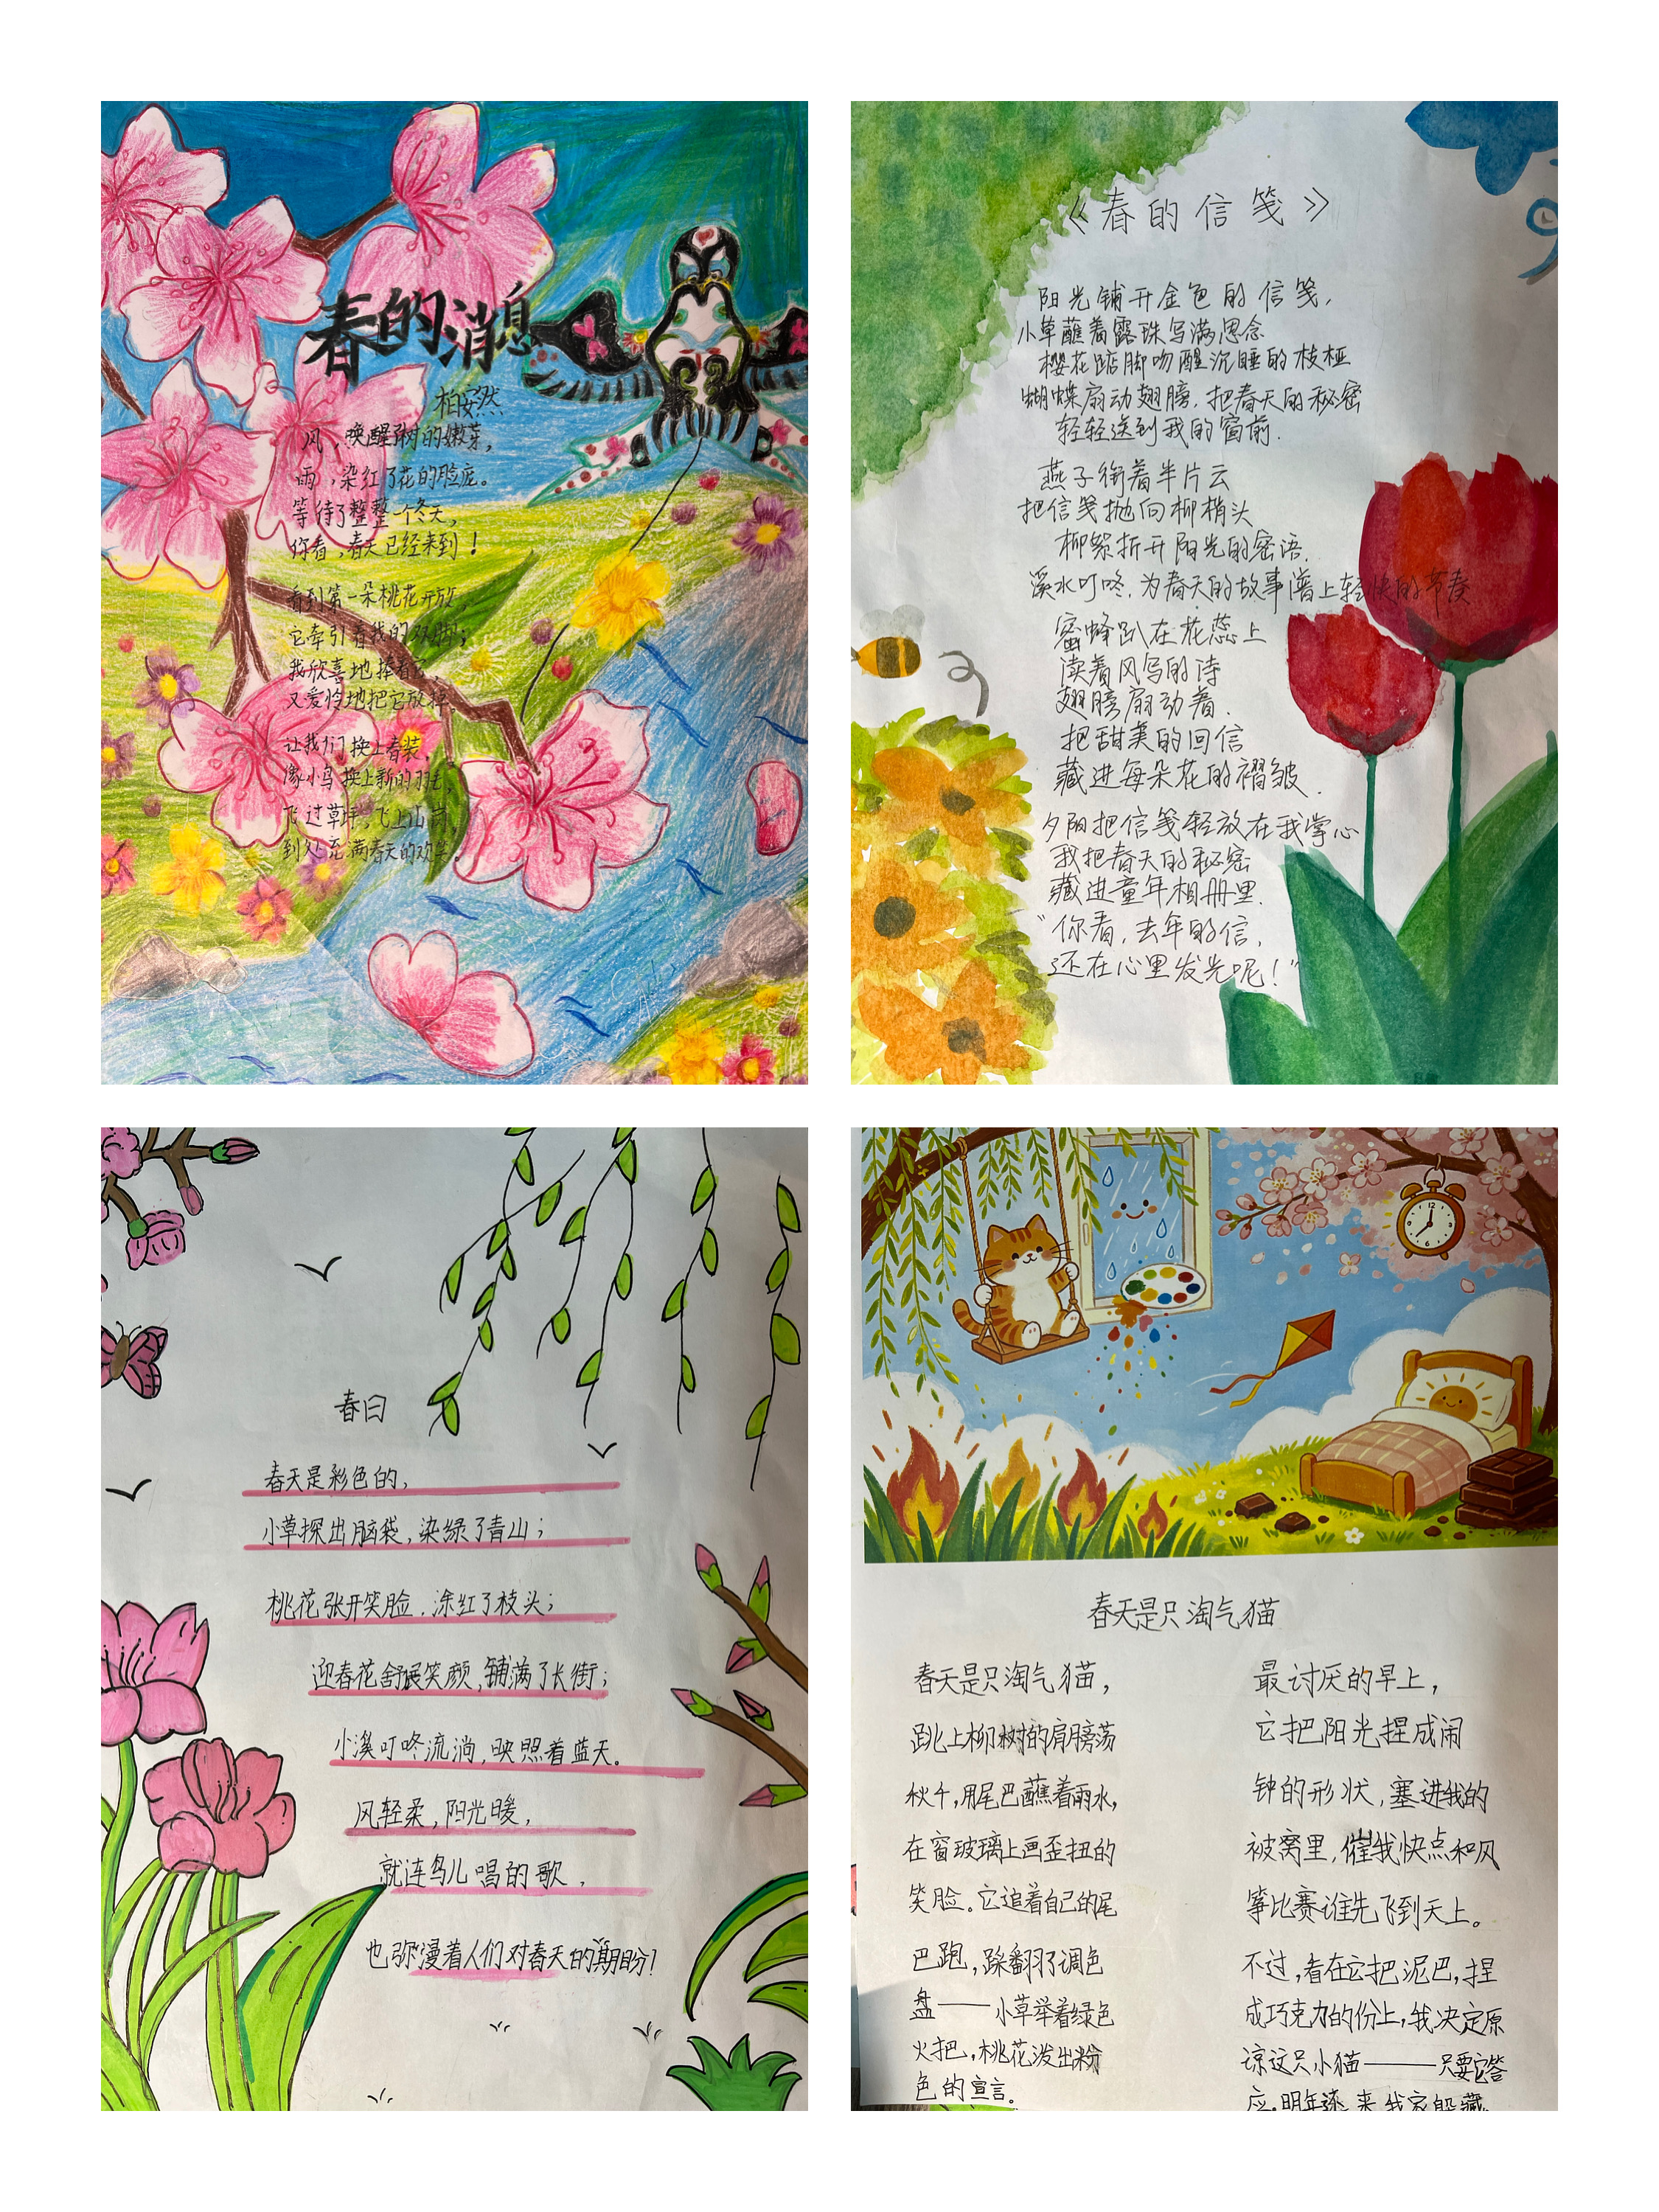 春的消息
柏安然
风，唤醒了树的嫩芽，
雨，染红了花的脸庞。
等待了整整一个冬天，
你看，春天已经来到！
看到第一朵桃花开放，
它牵引着我的双脚；
我欣喜地捧着它，
又爱怜地把它放掉。
让我们换上春装，
像小鸟换上新的羽毛，
飞过草坪，飞上山岗，
到处充满春天的欢笑。
《春的信笺》
阳光铺开金色的信笺，
小草蘸着露珠写满思念
樱花踮脚吻醒沉睡的枝桠
蝴蝶扇动翅膀，把春天的秘密
轻轻送到我的窗前.
燕子衔着半片云
把信笺抛向柳梢头
柳絮折开阳光的密语.
溪水叮咚，为春天的故事谱上轻快的节奏
蜜蜂趴在花蕊上
读着风写的诗
翅膀扇动着.
把甜美的回信
藏进每朵花的褶皱.
夕阳把信笺轻放在我掌心
我把春天的秘密
藏进童年相册里.
“你看，去年的信，
还在心里发光呢！”
春日
春天是彩色的，
小草探出脑袋，染绿了青山；
桃花张开笑脸，涂红了枝头；
迎春花舒展笑颜，铺满了长街；
小溪叮咚流淌，映照着蓝天。
风轻柔，阳光暖，
就连鸟儿唱的歌，
也弥漫着人们对春天的期盼！
春天是只淘气猫
春天是只淘气猫，
跳上柳树的肩膀荡
秋千，用尾巴蘸着雨水，
在窗玻璃上画歪扭的
笑脸。它追着自己的尾
巴跑，踩翻了调色
盘——小草举着绿色
火把，桃花泼出粉
色的宣言。
最讨厌的早上，
它把阳光捏成闹
钟的形状，塞进我的
被窝里，催我快点和风
筝比赛谁先飞到天上。
不过，看在它把泥巴，捏
成巧克力的份上，我决定原
谅这只小猫——只要它答
应，明年还来我家躲藏